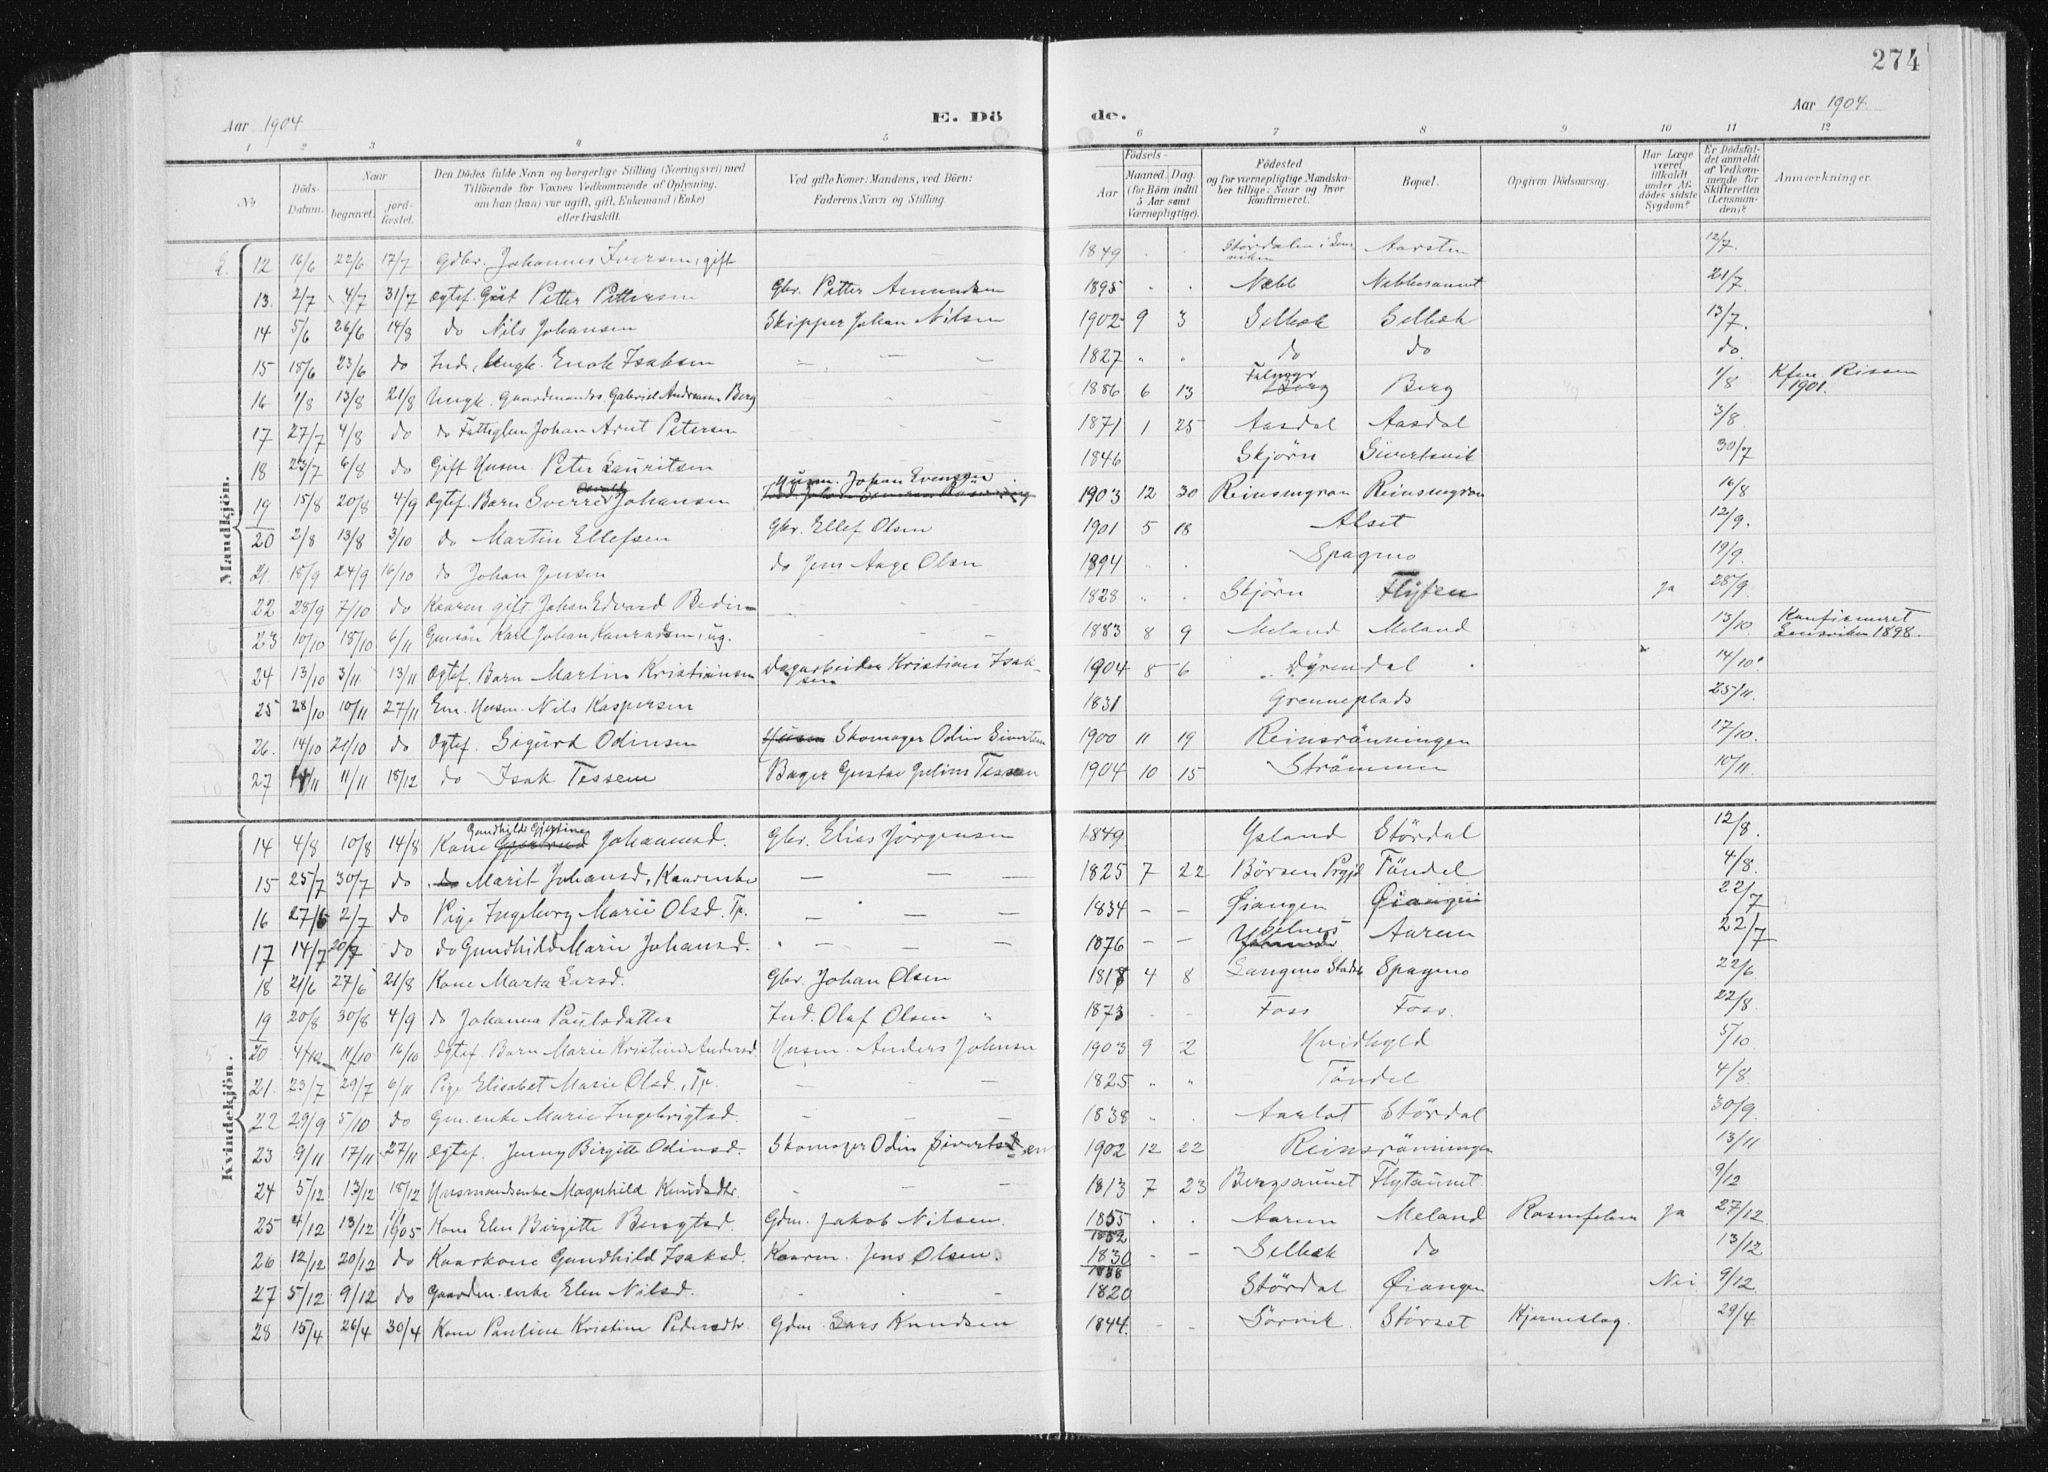 274
Aar 1904 E. Dö de. Aar 1904
1 2 3 4 5 6 7 8 9 10 11 12
No
Döds-Datum.
Naar begravet. jordfæstet.
Den Dödes fulde Navn og borgerlige Stilling (Næringsvei) med Tilföiende for Voxnes Vedkommende af Oplysning, om han (hun) var ugift, gift, Enkemand (Enke) eller fraskilt.
Ved gifte Koner: Mandens, ved Börn: Faderens Navn og Stilling.
Födsels- Aar Maaned. Dag. (for Börn indtil 5 Aar samt Værnepligtige).
Födested og for værnepligtige Mandskaber tillige: Naar og hvor konfirmeret.
Bopæl.
Opgiven Dödsaarsag.
Har Læge været tilkaldt under Afdödes sidste Sygdom?
Er Dödsfaldet anmeldt af Vedkommende for Skifteretten (Lensmanden)?
Anmærkninger.
Mandkjön.
12 16/6 22/6 17/7 Gdbr. Johannes Iversen, gift — — 1849 Stördalen i Lensviken Aarsten 12/7.
13. 2/7 4/7 31/7 Ogtef. Gut Petter Pettersen Gbr. Petter Amundsen 1895 Nebb Nebbesaunet 21/7.
14 5/6 26/6 14/8 do Nils Johansen Skipper Johan Nilsen 1902 9 3 Selbæk Selbæk 13/7.
15 18/6 23/6 do Ind., Ungk. Enok Isaksen — — — 1827 do do do.
16 1/8 13/8 21/8 Ungk. Gaardmands. Gabriel Andreasen Berg 1886 6 13 Berg 1/8 Kfm. Rissen 1901.
17 27/7 4/8 do do Fattiglem Johan Arnt Petersen 1871 1 25 Aasdal Aasdal 3/8.
18 23/7 6/8 do Gift Husm. Peter Lauritsen 1846 Skjörn Sivertsvik 30/7
19 15/8 20/8 4/9 Ogtef. Barn Sverre Osvald Johansen Husm. Johan 1903 12 30 Reinsmyran Reinsmyran 16/8
20 2/8 13/8 3/10 do Martin Ellefsen Gbr. Ellef Olsen 1901 5 18 Alset 12/9.
21. 15/9 24/9 16/10 do Johan Jensen do Jens Aage Olsen 1894 Spagmo 19/9.
22 28/9 7/10 do Kaarm gift Johan Edvard Bedin 1828 Skjörn Flyten ja 28/9.
23 10/10 15/10 6/11 Gmsön Karl Johan Konradsen, ug. — — — 1883 8 9 Meland Meland 13/10 Konfirmeret Lensviken 1898.
24 13/10 3/11 13/11 Ogtef. Barn Martin Kristiansen Dagarbeider Kristian Isaksen 1904 8 6 Dyrendal 14/10.
25 28/10 10/11 27/11 Em. Husm. Nils Kaspersen 1831 Grenneplads 25/11.
26. 14/10 21/10 do Ogtef. Sigurd Odinsen Husm Skomager Odin Sivertsen 1900 11 19 Reinsrönningen 17/10.
27 11/11 18/12 do Isak Tessem Bager Gustav Julius Tessem 1904 10 15 Strömmen 10/11.
Kvindekjön.
14 4/8 10/8 14/8 Kone Gundhild Gjertine Johannesd. Gbr. Elias Jörgensen 1849 Ysland Stördal 12/8.
15 25/7 30/7 do do Marit Johansd, Kaarenke — — — 1825 7 22 Börsen Prgjd Töndel 4/8.
16 27/6 2/7 do Pige Ingeborg Marie Olsd. Tp. — — — 1834 — — Øiangen Øiangen 22/7
17 14/7 20/7 do do Gundhild Marie Johansd. — — — 1876 — — Selnes Aarem 22/7
18 21/6 27/6 21/8 Kone Marta Larsd. Gbr. Johan Olsen 1818 4 8 Langmo Stadsb Spagmo 22/6
19 20/8 30/8 4/9 do Johanna Paulsdatter Ind. Olaf Olsen 1873 — — Foss Foss. 22/8
20 4/10 11/10 16/10 Ogtef. Barn Marie Kristine Andersd. Husm. Anders Johnsen 1903 9 2 Hvidhyld 5/10
21. 23/7 29/7 6/11 Pige Elisabet Marie Olsd., Tp. — — — 1825 Töndel 4/8.
22 29/9 5/10 do Gm. enke Marie Ingebrigtsd. — — — 1838 Aarlot Stördal 30/9.
23 9/11 17/11 27/11 Ogtef. Jenny Birgitte Odinsd. Skomager Odin Sivertsen 1902 12 22 Reinsrönningen 13/11
24 5/12 13/12 18/12 Husmandsenke Magnhild Knudsdtr. 1813 7 23 Bergsaunet Flytaunet 9/12
25 4/12 13/12 1/1 1905 Kone Elen Birgitte Bengtsd. Gdm. Jakob Nilsen. 1855 1852 Aarem Meland Rosenfeber ja 27/12.
26 12/12 20/12 do Kaarkone Gundhild Isaksd. Kaarm. Jens Olsen. 1830 1838 — — Selbæk do 13/12
27 5/12 9/12 do Gaardm. enke Elen Nilsd. — — 1820 Stördal Øiangen Nei 9/12
28 15/4 26/4 30/4 Kone Pauline Kristine Pedersdtr. Gdm. Lars Knudsen 1844 — — Sörvik Störset Hjerneslag. 29/4